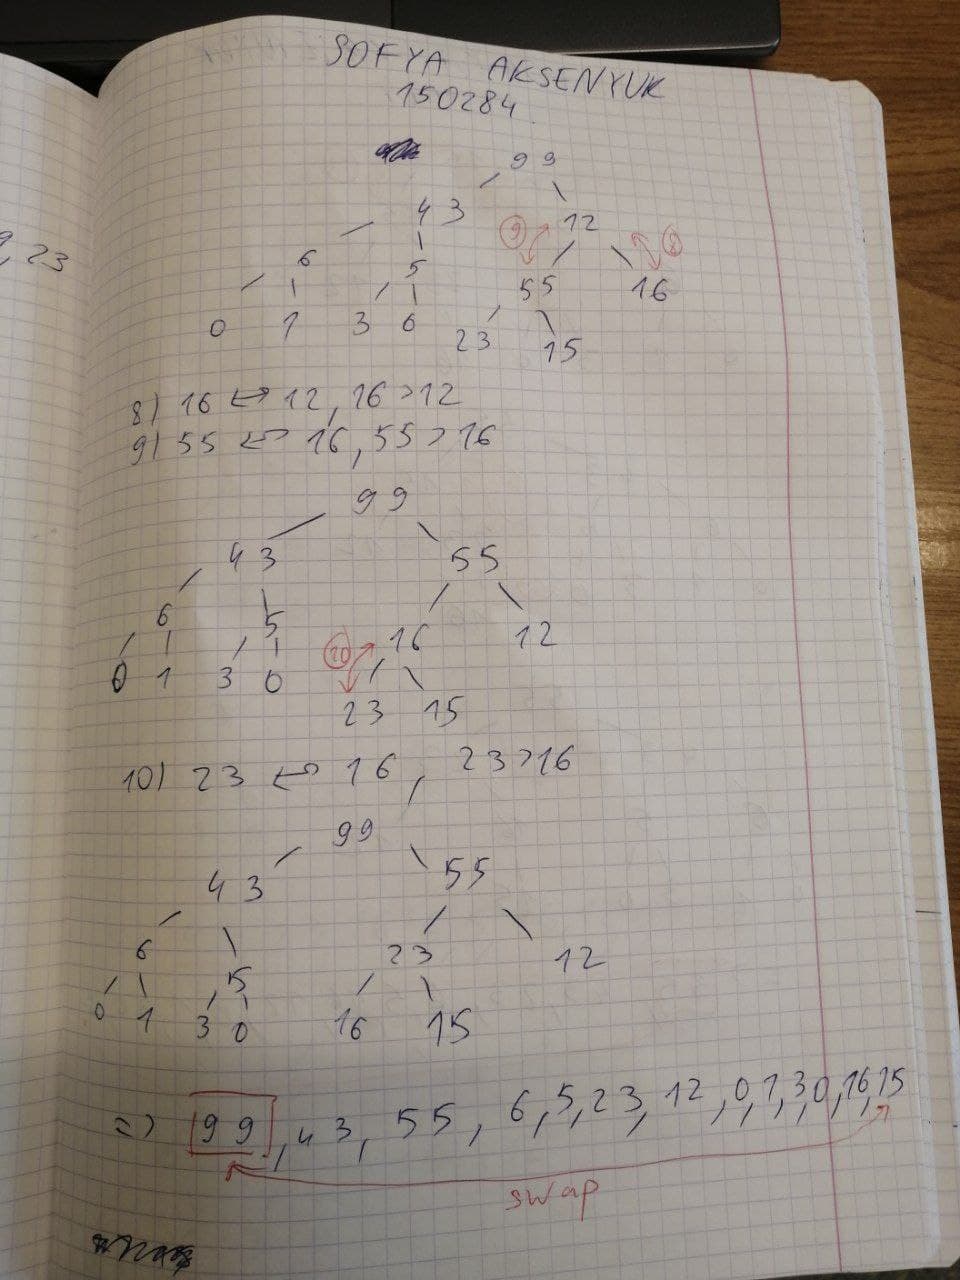 SOFYA AKSENYUK
150284
99
, 23
43 12
9 8
6 5 55 16
0 1 3 6 23 15
8) 16 ↔ 12, 16 > 12
9) 55 ↔ 16, 55 > 16
99
43 55
6 5 16 12
10
0 1 3 0 23 15
10) 23 ↔ 16, 23 > 16
99
43 55
6 5 23 12
0 1 3 0 16 15
=) 99, 43, 55, 6, 5, 23, 12, 0, 1, 3, 0, 16, 15
swap